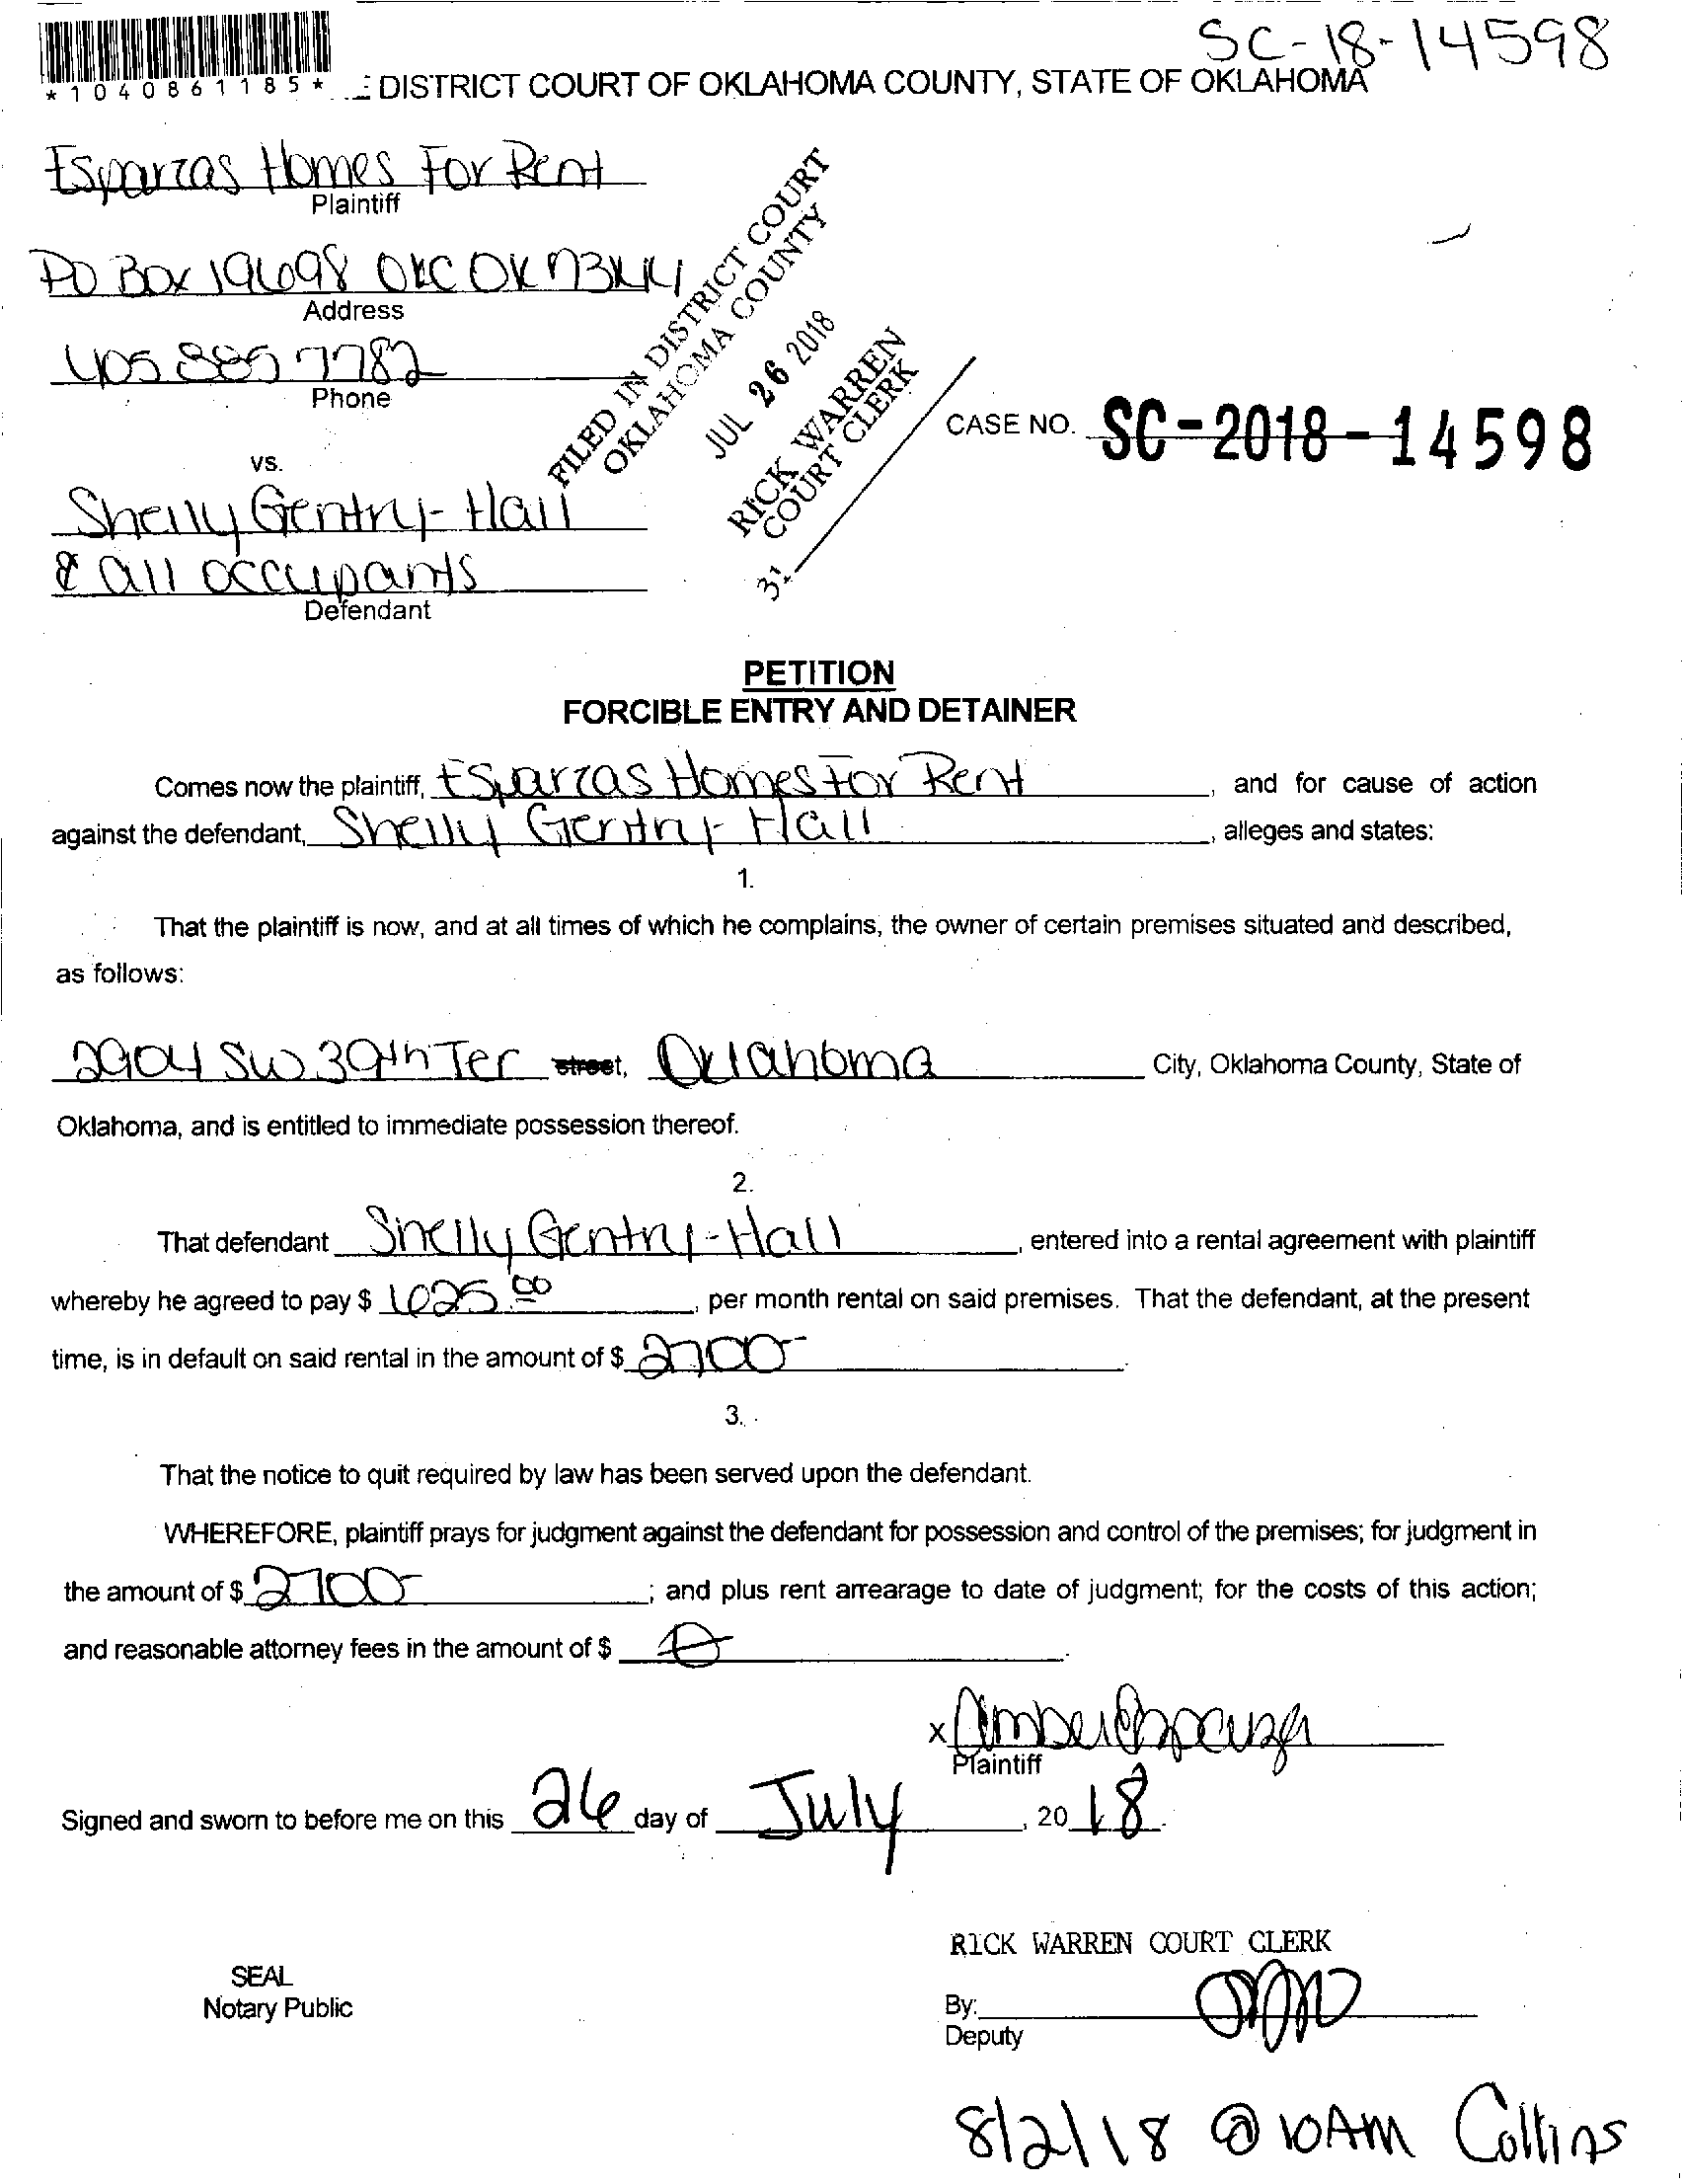 SC-18-14598
*1040861185*
DISTRICT COURT OF OKLAHOMA COUNTY, STATE OF OKLAHOMA
Esparzas Homes For Rent
Plaintiff
PO Box 19698 OKC OK 73144
Address
405 885 7782
Phone
FILED IN DISTRICT COURT
OKLAHOMA COUNTY
JUL 26 2018
RICK WARREN
COURT CLERK
31
CASE NO. SC-2018-14598
vs.
Shelly Gentry-Hall
& all occupants
Defendant
PETITION
FORCIBLE ENTRY AND DETAINER
Comes now the plaintiff, Esparzas Homes For Rent, and for cause of action
against the defendant, Shelly Gentry-Hall, alleges and states:
1.
That the plaintiff is now, and at all times of which he complains, the owner of certain premises situated and described,
as follows:
2904 SW 39th Ter street, Oklahoma City, Oklahoma County, State of
Oklahoma, and is entitled to immediate possession thereof.
2.
That defendant Shelly Gentry-Hall, entered into a rental agreement with plaintiff
whereby he agreed to pay $ 1025.00, per month rental on said premises. That the defendant, at the present
time, is in default on said rental in the amount of $ 2700-.
3.
That the notice to quit required by law has been served upon the defendant.
WHEREFORE, plaintiff prays for judgment against the defendant for possession and control of the premises; for judgment in
the amount of $ 2700-; and plus rent arrearage to date of judgment; for the costs of this action;
and reasonable attorney fees in the amount of $ 0.
x Amber Esparza
Plaintiff
Signed and sworn to before me on this 26 day of July, 2018.
RICK WARREN COURT CLERK
SEAL
Notary Public
By:
Deputy
8/2/18 @ 10AM Collins